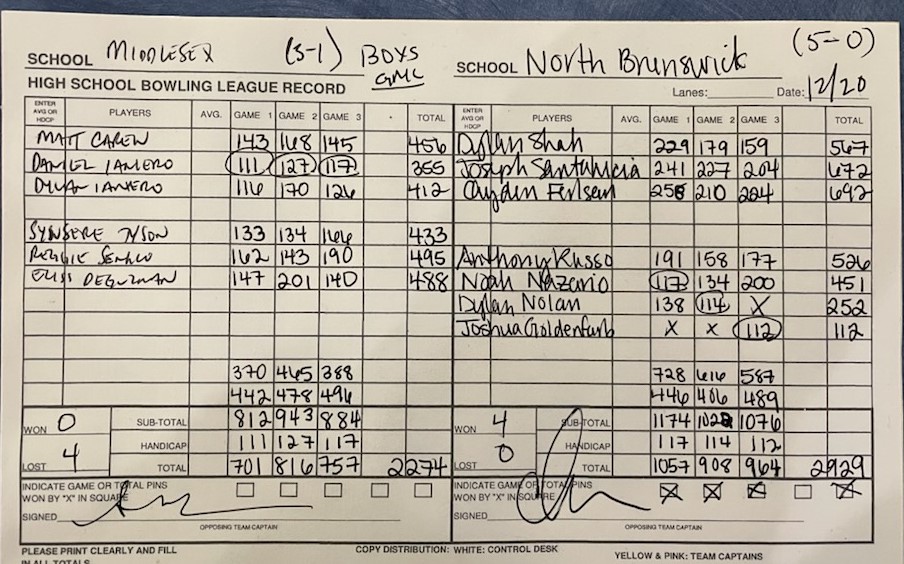 SCHOOL MIDDLESEX (3-1) BOYS GMC SCHOOL North Brunswick (5-0)
HIGH SCHOOL BOWLING LEAGUE RECORD Lanes: Date: 12/20
ENTER AVG OR HDCP PLAYERS AVG. GAME 1 GAME 2 GAME 3 TOTAL ENTER AVG OR HDCP PLAYERS AVG. GAME 1 GAME 2 GAME 3 TOTAL
MATT CAREW 143 168 145 456 Dylan Shah 229 179 159 567
DANIEL IANIERO 111 127 117 355 Joseph Santalucia 241 227 204 672
DYLAN IANIERO 116 170 126 412 Cayden 258 210 224 692
SYNSERE TYSON 133 134 166 433
162 143 190 495 Anthony Russo 191 158 177 526
DEGUZMAN 147 201 140 488 Noah Nazario 117 134 200 451
Dylan Nolan 138 114 X 252
Joshua Goldenfarb X X 112 112
370 465 388 728 616 587
442 478 496 446 406 489
WON 0 SUB-TOTAL 812 943 884 WON 4 SUB-TOTAL 1174 1022 1076
HANDICAP 111 127 117 HANDICAP 117 114 112
LOST 4 TOTAL 701 816 757 2274 LOST 0 TOTAL 1057 908 964 2929
INDICATE GAME OR TOTAL PINS INDICATE GAME OR TOTAL PINS
WON BY "X" IN SQUARE WON BY "X" IN SQUARE X X X X
SIGNED SIGNED
OPPOSING TEAM CAPTAIN OPPOSING TEAM CAPTAIN
PLEASE PRINT CLEARLY AND FILL COPY DISTRIBUTION: WHITE: CONTROL DESK YELLOW & PINK: TEAM CAPTAINS
IN ALL TOTALS